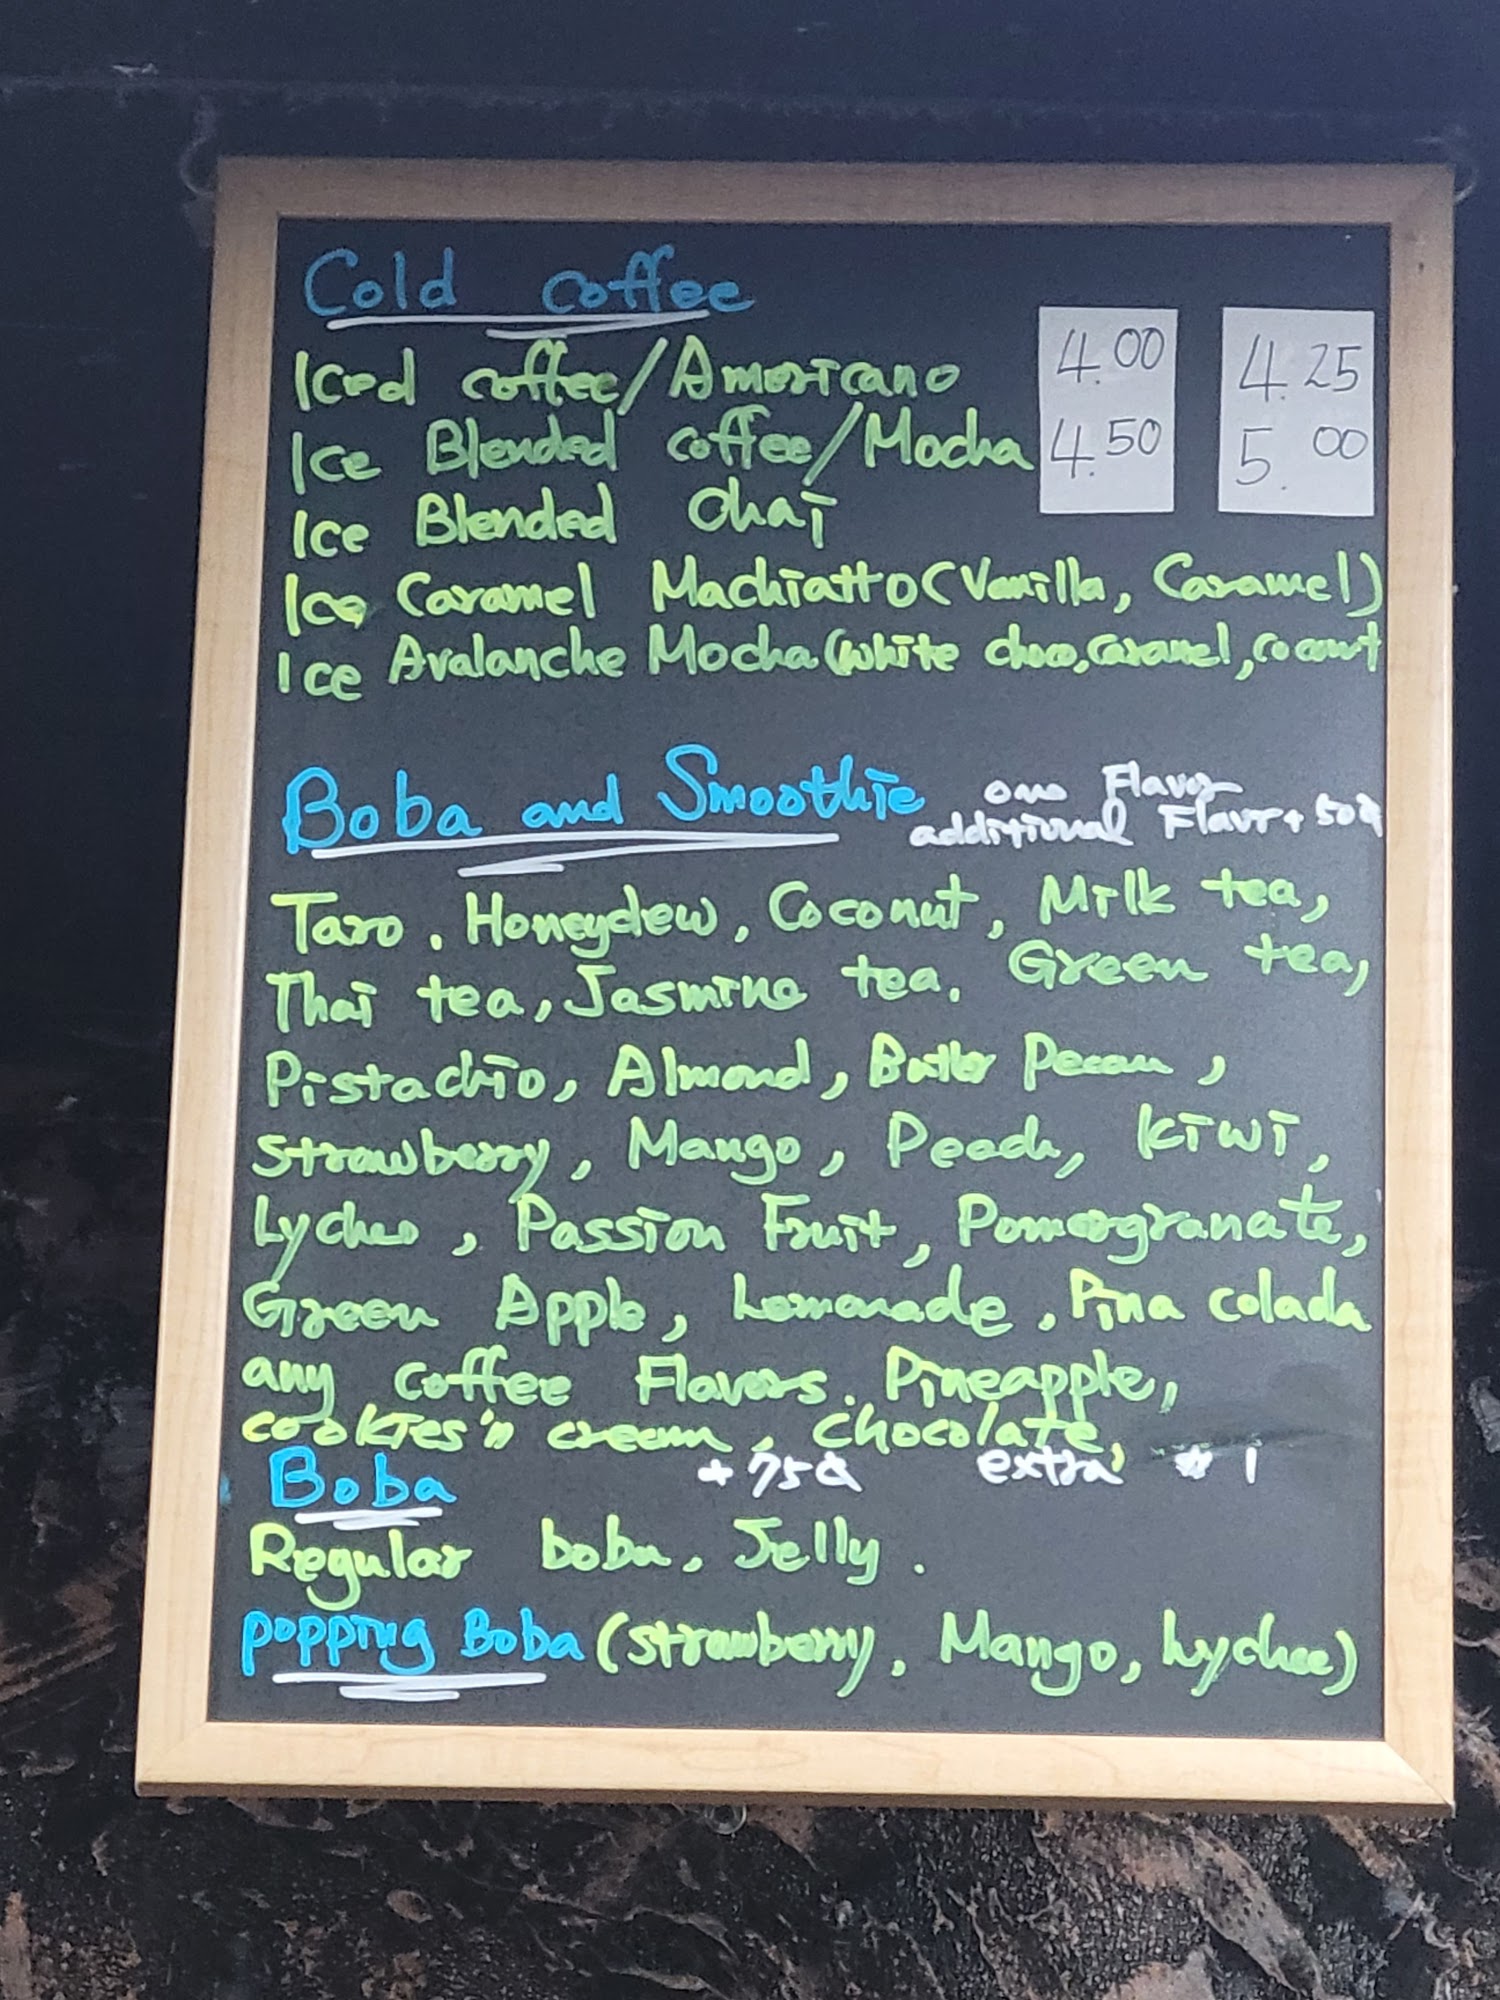 Cold coffee
Iced coffee/Americano 4.00 4.25
Ice Blended coffee/Mocha 4.50 5.00
Ice Blended Chai
Ice Caramel Machiatto (Vanilla, Caramel)
Ice Avalanche Mocha (white choco, caramel, coconut
Boba and Smoothie one Flavor
additional Flavr + 50¢
Taro, Honeydew, Coconut, Milk tea,
Thai tea, Jasmine tea, Green tea,
Pistachio, Almond, Butter Pecan,
Strawberry, Mango, Peach, Kiwi,
Lychee, Passion Fruit, Pomergranate,
Green Apple, Lemonade, Pina colada
any coffee Flavors. Pineapple,
cookies'n cream, chocolate,
Boba + 75¢ extra * 1
Regular boba, Jelly.
Popping Boba (strawberry, Mango, Lychee)